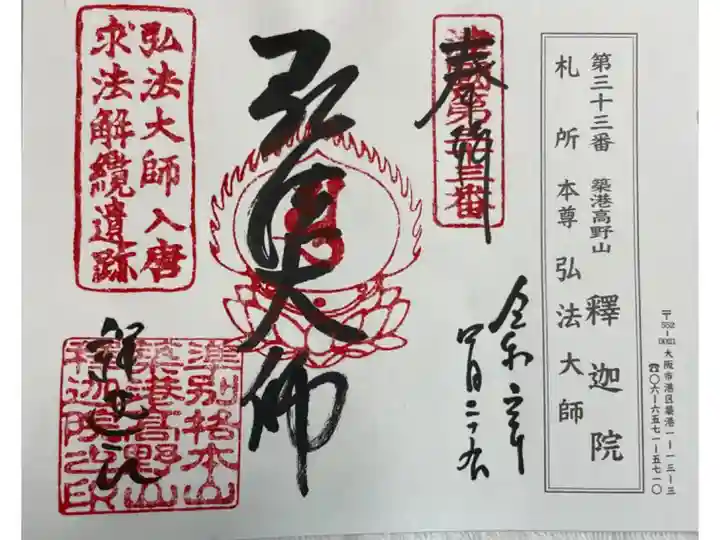 第三十三番 築港高野山 釋迦院
札所本尊 弘法大師
〒552-0021 大阪市港区築港一-一三-三
☎〇六-六五七一-五七一〇
奉納
第三十三番
令和六年
四月二十九
弘法大師
弘法大師入唐
求法解纜遺跡
釋迦院
準別格本山
築港高野山
釋迦院之印